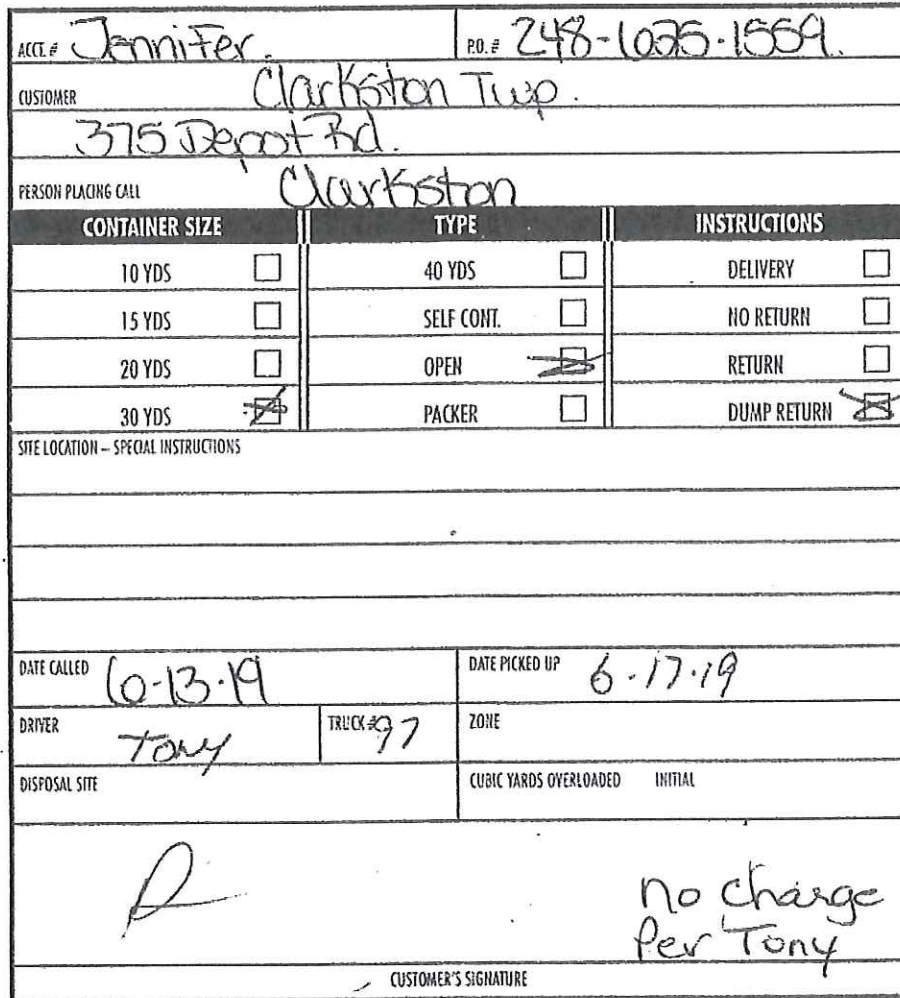 ACCT. # Jennifer. P.O. # 248-625-1559.
CUSTOMER Clarkston Twp.
375 Depot Rd.
PERSON PLACING CALL Clarkston
CONTAINER SIZE TYPE INSTRUCTIONS
10 YDS 40 YDS DELIVERY
15 YDS SELF CONT. NO RETURN
20 YDS OPEN RETURN
30 YDS PACKER DUMP RETURN
SITE LOCATION – SPECIAL INSTRUCTIONS
DATE CALLED 6-13-19 DATE PICKED UP 6-17-19
DRIVER Tony TRUCK # 97 ZONE
DISPOSAL SITE CUBIC YARDS OVERLOADED INITIAL
no charge
Per Tony
CUSTOMER'S SIGNATURE